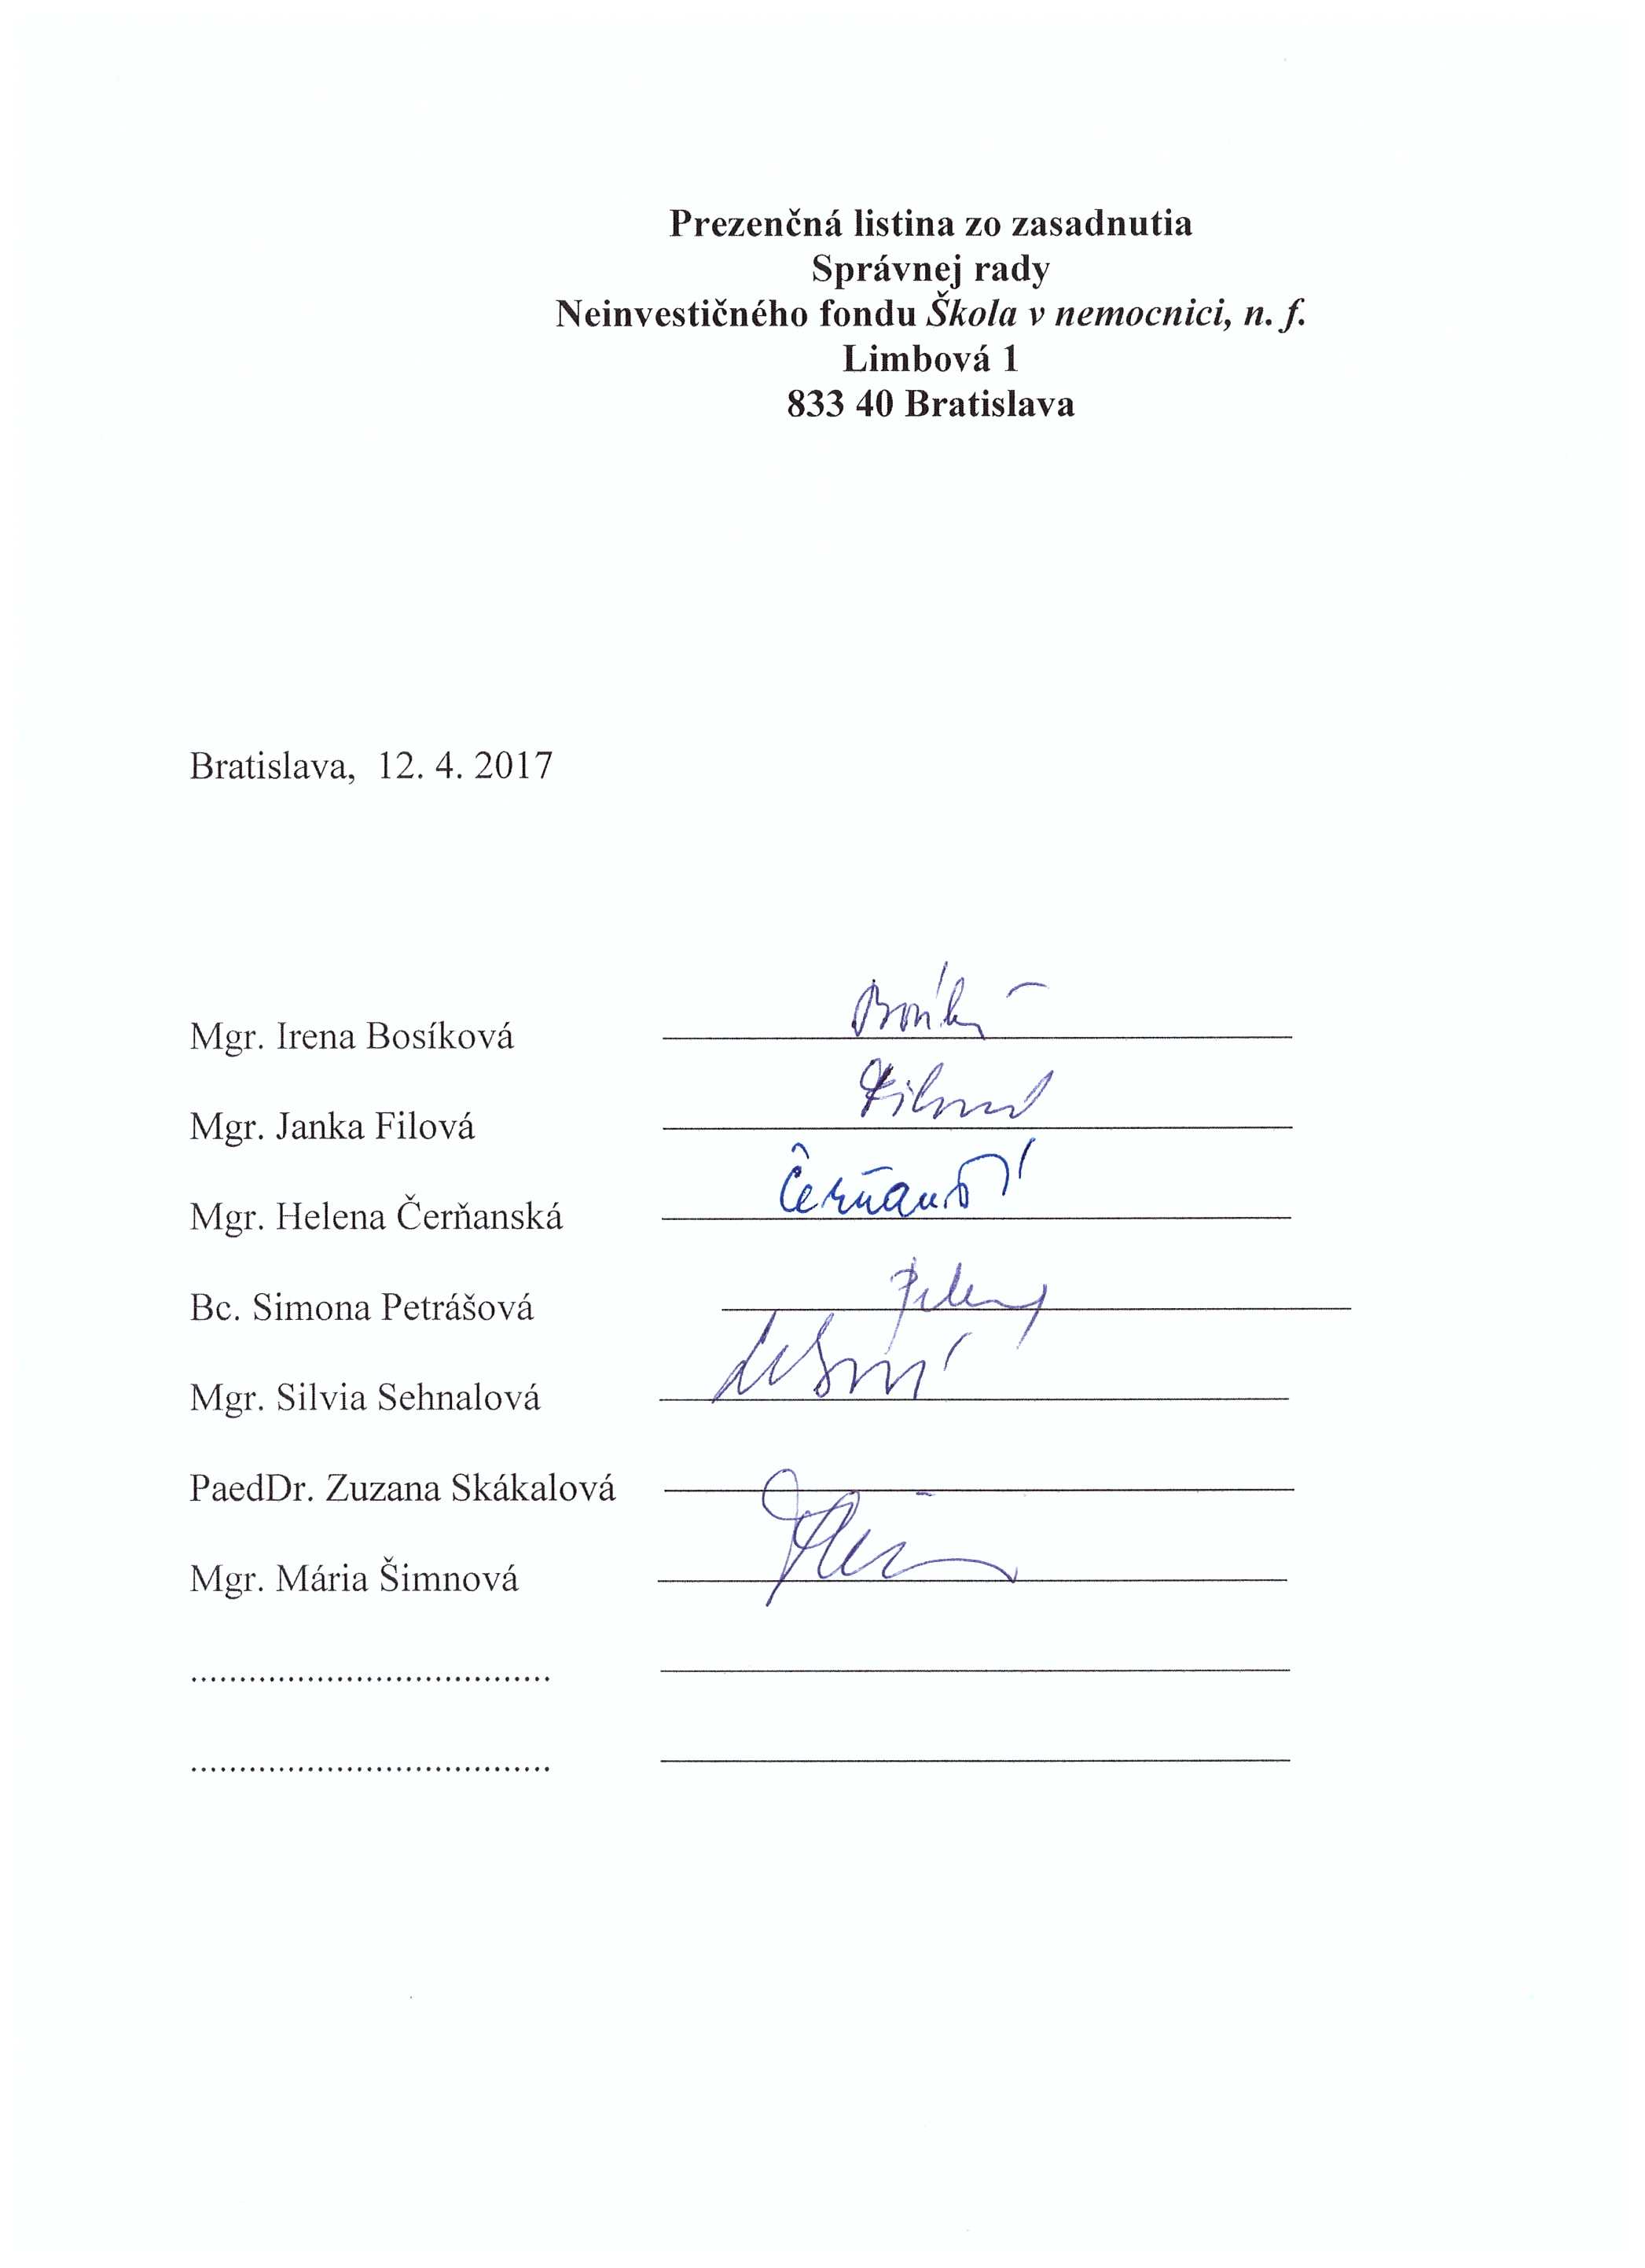 Prezenčná listina zo zasadnutia
Správnej rady
Neinvestičného fondu Škola v nemocnici, n. f.
Limbová 1
833 40 Bratislava
Bratislava, 12. 4. 2017
Mgr. Irena Bosíková
Mgr. Janka Filová
Mgr. Helena Čerňanská
Bc. Simona Petrášová
Mgr. Silvia Sehnalová
PaedDr. Zuzana Skákalová
Mgr. Mária Šimnová